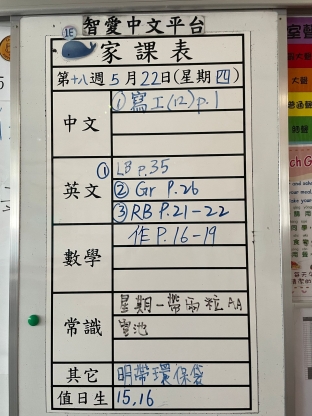 1E
智愛中文平台
家課表
第十八週5月22日(星期四)
中文 ①寫工(12)p.1
英文 ①LB P.35
②Gr P.26
③RB P.21-22
數學 作P.16-19
常識 星期一帶兩粒AA
電池
其它 明帶環保袋
值日生 15,16